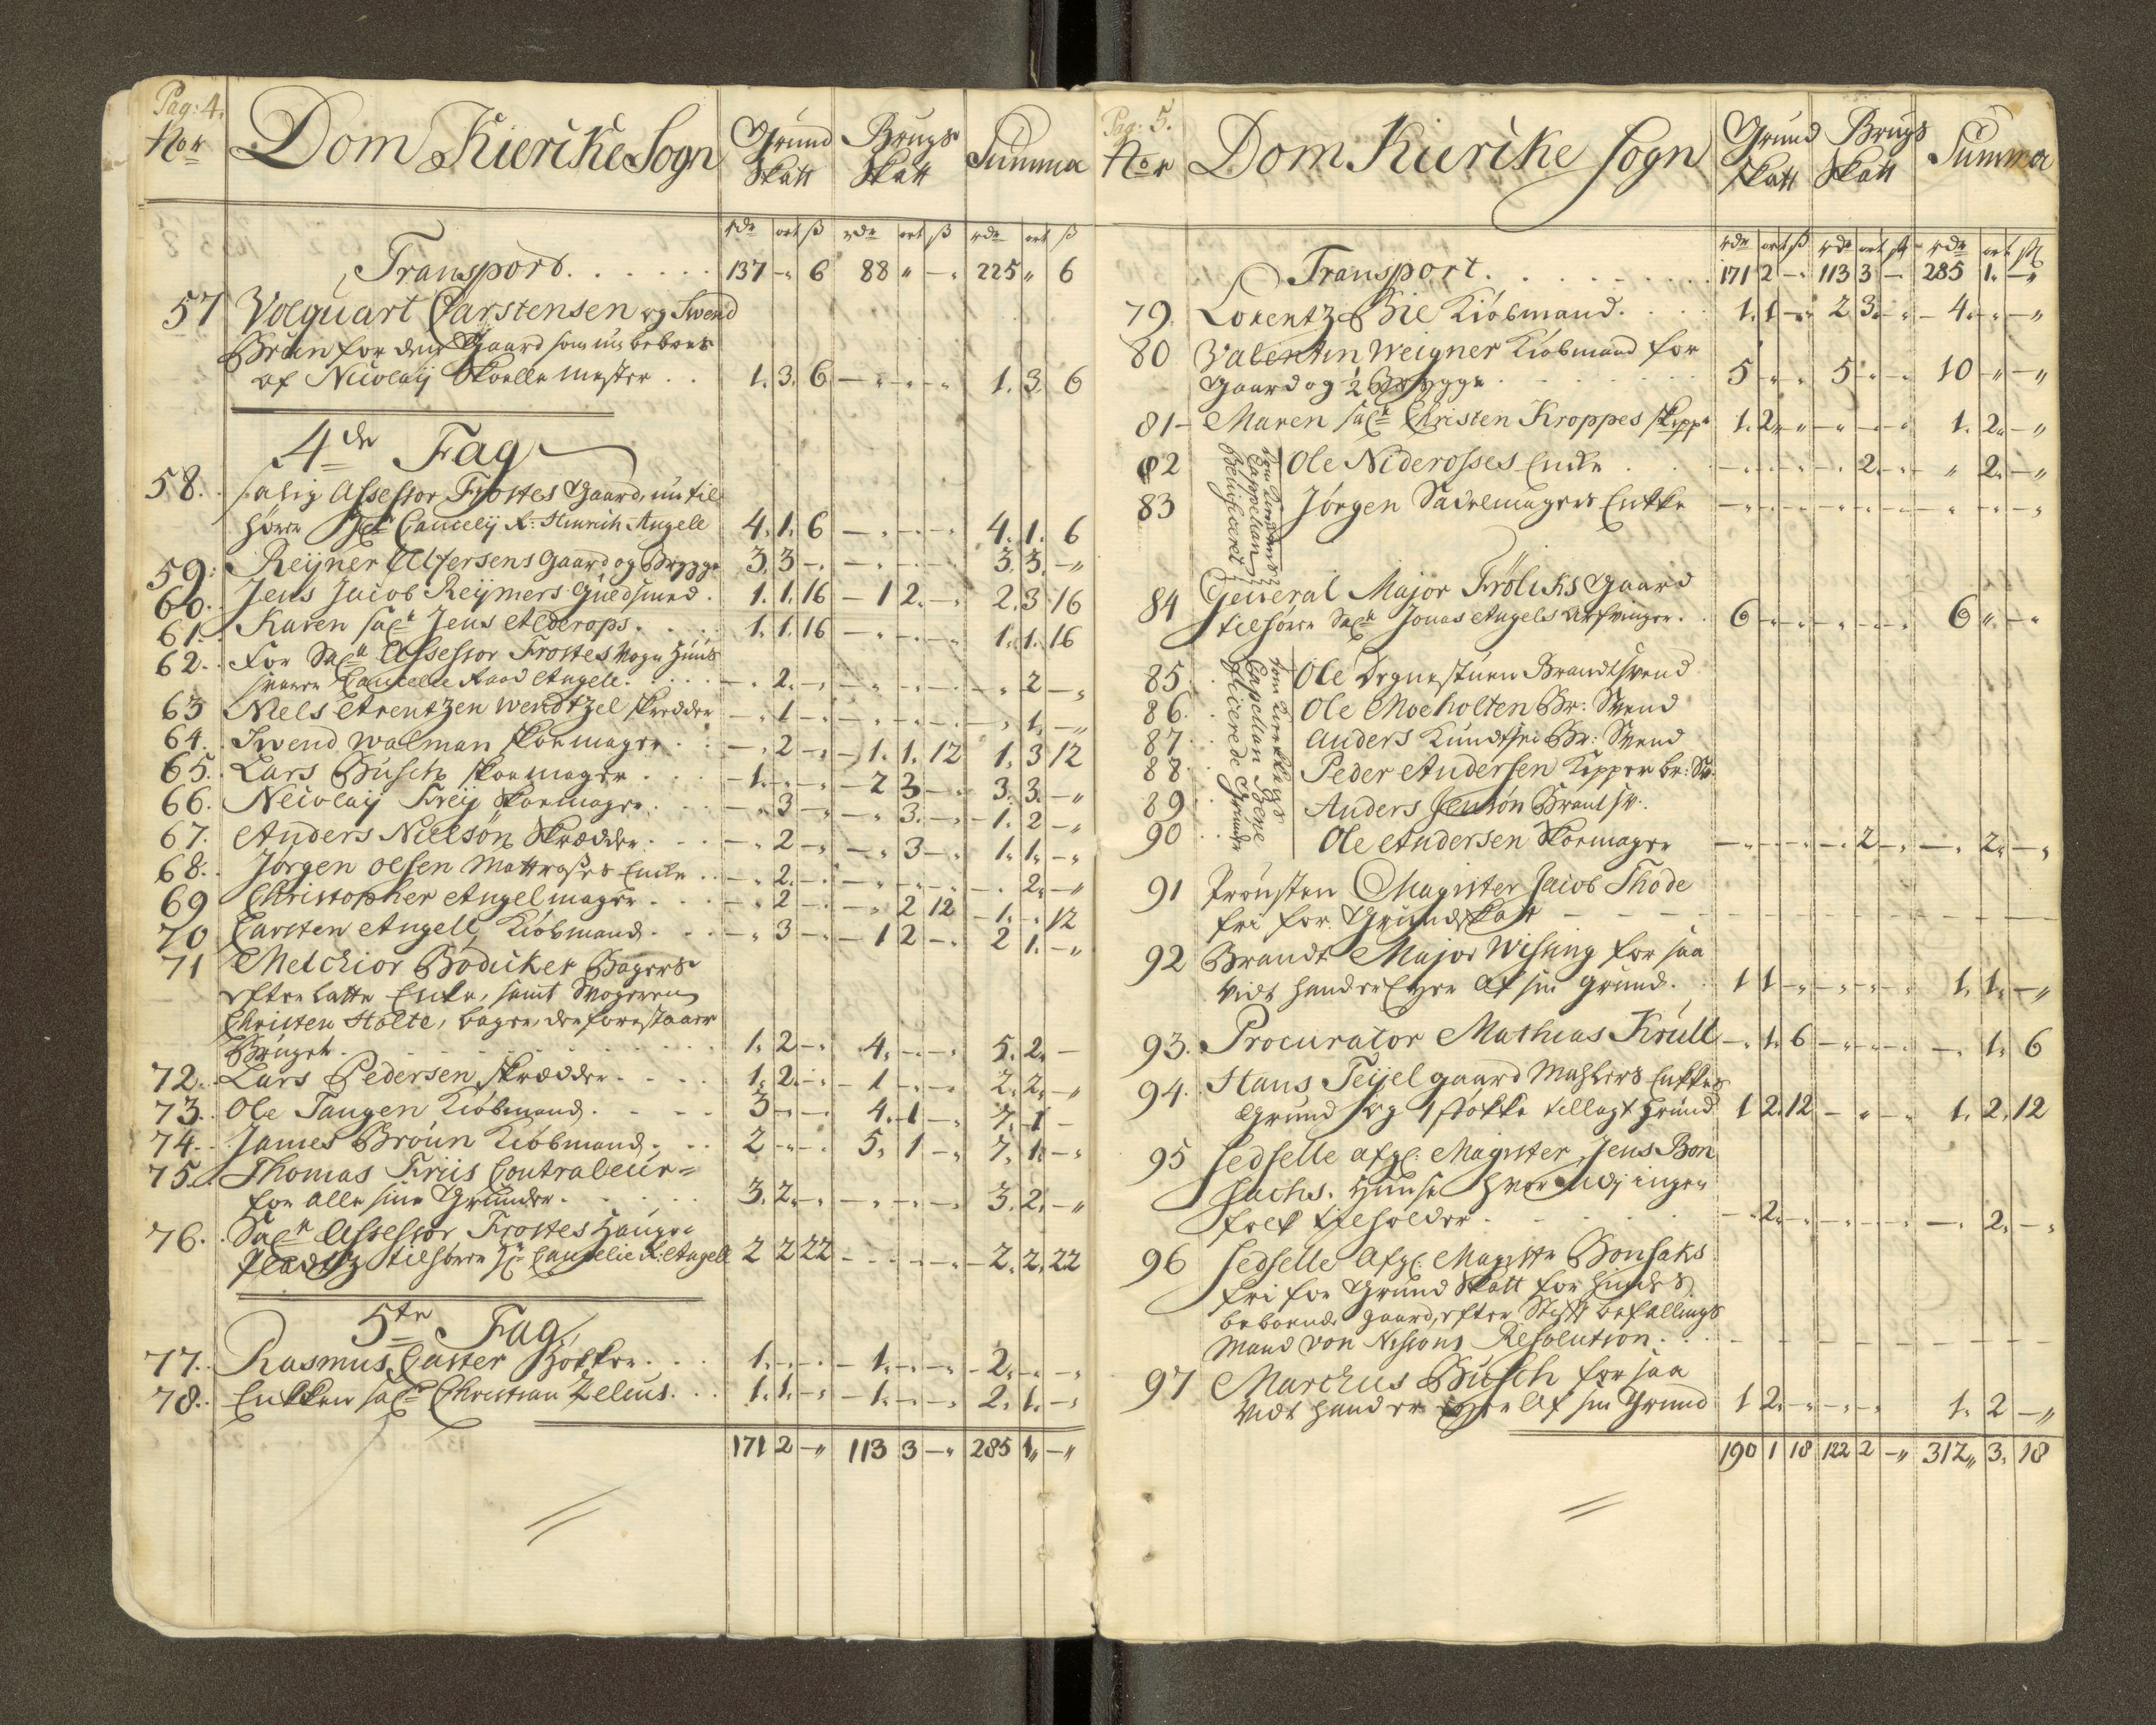 Pag: 4.
No Dom Kiercke Sogn Grund Skatt Brugs Skatt Summa
rdr ort ß rdr ort ß rdr ort ß
Transport. 137 - 6 88 " - 225 " 6
57 Volquart Carstensen og Swend
Brun for den Gaard som nu beboes
af Nicolaij Skoelle mester . . 1. 3. 6 - - - 1. 3. 6
4de Fag
58. salig Assessor Frostes Gaard, nu til
hører Hr Cancelij R: Hinrich Angell 4. 1. 6 - - - 4. 1. 6
59. Reijner Ellfersens Gaard og Brygge 3. 3 - - - - 3. 3. -
60. Jens Jacob Reijmers Guldsmed. 1. 1. 16 - 1 2. - 2. 3 16
61. Karen sal Jens Alderops. 1. 1. 16 - - - 1. 1. 16
62. For Sal Assessor Frostes Vogn Huus
svarer Cancellie Raad Angell. - 2. - - - - - 2 -
63 Niels Arentzen Wendtzel skredder - 1 - - - - - 1. -
64. Swend Walman skoemager - 2 - 1. 1. 12 1. 3 12
65. Lars Busch skoemager. 1. - - 2 3 - 3. 3. -
66. Nicolaij Freij Skoemager. - 3 - - 3. - 1. 2 -
67. Anders Nielsøn Skrædder. - 2 - - 3 - 1. 1. -
68. Jørgen Olsen Mattroses Encke - 2. - - - - - 2. -
69 Christopher Angelmager. - 2 - - 2 12 1. - 12
70 Carsten Angell Kiøbmand. - 3 - 1 2 - 2 1. -
71 Melchior Bødicker Bagers
efterlatte Encke, samt Svogeren
Christen Holte, bager, der forestaaer
Bruget. 1. 2 - 4. - - 5. 2. -
72. Lars Pedersen skrædder. 1. 2. - 1 - - 2. 2. -
73. Ole Tangen Kiøbmand. 3 - - 4. 1 - 7. 1 -
74. James Broun Kiøbmand. 2 - - 5. 1 - 7. 1. -
75. Thomas Friis Contraleur=
for alle sine Grunder. 3. 2. - - - - 3. 2. -
76. Sal Assessor Frostes Hauge
Pladtz tilhører Hr Cancelie R: Angell 2 2 22 - - - 2. 2. 22
5te Fag
77. Rasmus Caster Høcker. 1. - - 1. - - 2. - -
78. Enkken sal Christian Zeleus. 1. 1. - 1. - - 2. 1. -
171 2 - 113 3 - 285 1 -
Pag: 5.
No Dom Kiercke Sogn Grund Skatt Brugs Skatt Summa
rdr ort ß rdr ort ß rdr ort ß
Transport. 171 2 - 113 3 - 285 1. -
79. Lorentz Bie Kiøbmand. 1. 1 - 2 3. - 4. - -
80 Valentin Weigner Kiøbmand for
Gaard og 1/2 Brygge. 5 - - 5 - - 10 - -
81 - Maren sal Christen Kroppes skipp. 1. 2. - - - - 1. 2. -
82 Ole Niderosses Encke - - - - 2. - - 2. -
83 Jørgen Sadelmagers Enkke - - - - - - - - -
Dom Kierckens Cappelan Beneficeret
84 General Major Frölichs Gaard
tilhører Sal Jonas Angels Arfvinger. 6 - - - - - 6 - -
85. Ole Degnestuen Brandtsvend
86. Ole Moeholten Br: Svend
87. Anders Kundtsen Br: Svend
88. Peder Andersen Kipper br: Sv.
89 Anders Jensøn Brandt sv.
90 Ole Andersen Skoemager - - - - 2 - - 2. -
Dom Kierckens Capellan Beneficerede Grunder
91 Prousten Magister Jacob Thode
fri for Grundskatt - - - - - - - - -
92 Brandt Major Wising for saa
vidt hand er Eyer af sin grund. 1 1 - - - - 1. 1. -
93. Procurator Mathias Krull - 1. 6 - - - - 1. 6
94. Hans Teijelgaard Mahlers Enkkes
Grund og 1 støkke tillagt grund 1 2. 12 - - - 1. 2. 12
95 Sedselle afg: Magister Jens Bon
sachs. Huuse hvor udj ingen
folk tilholder. - 2. - - - - - 2. -
96 Sedselle Afg: Magister Bonsaks
fri for Grund Skatt for hindes
beboende gaard, efter Stift befallings
Mand von Nissens Resolution. - - - - - - - - -
97 Marchus Busch for saa
vidt hand er Eyer af sin Grund 1 2. - - - - 1. 2 -
190 1 18 122 2 - 312 3. 18